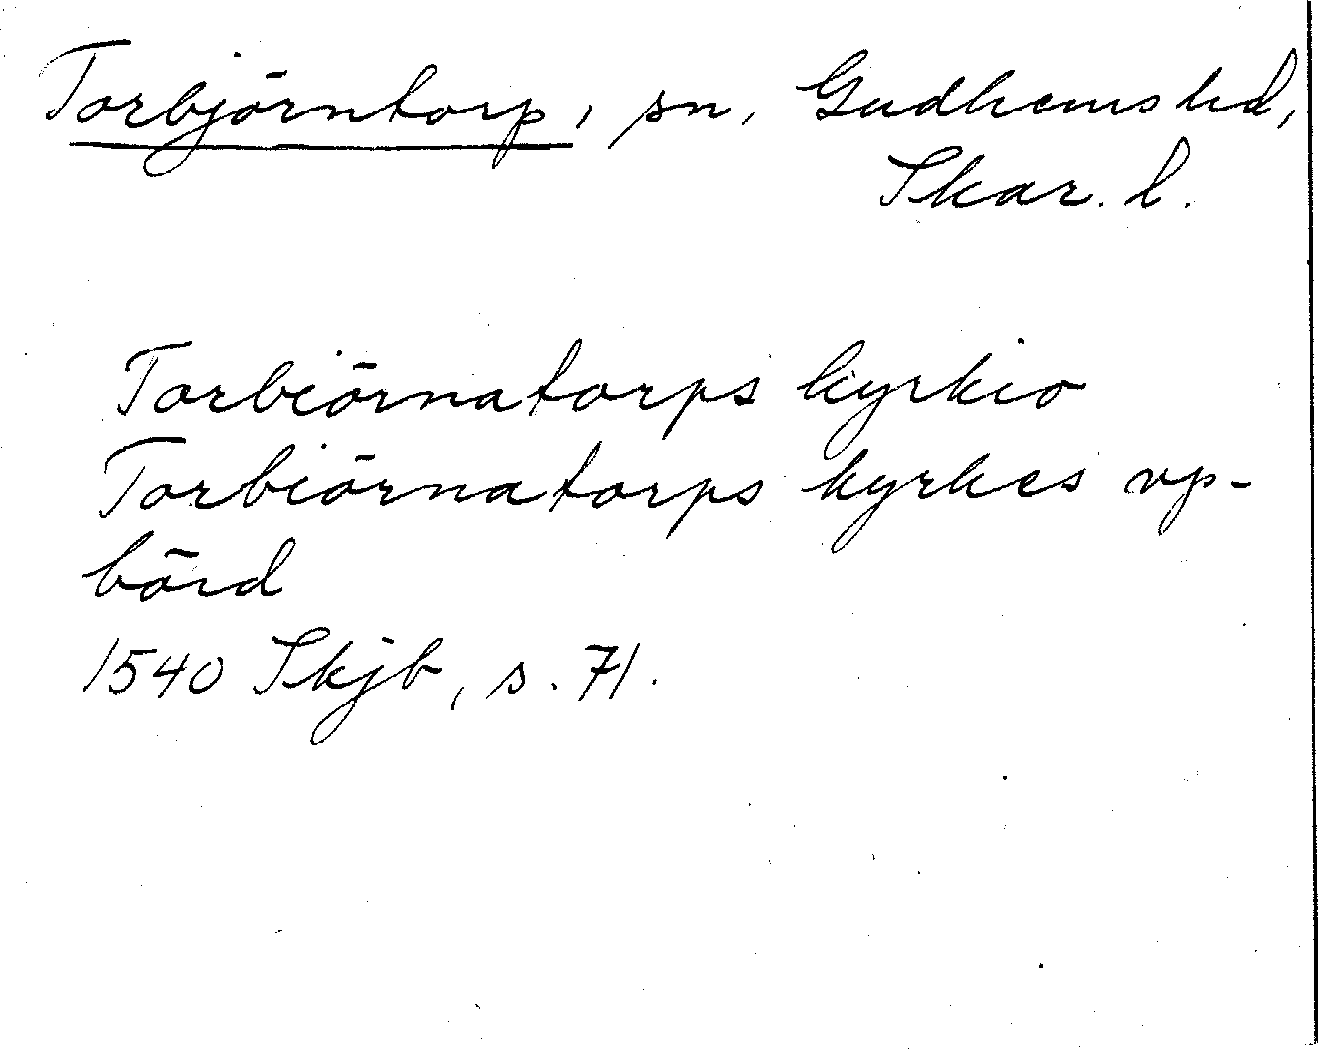 Torbjörntorp, sn, Gudhems hd,
Skar. l.
Torbiörnatorps kyrkio
Torbiörnatorps kyrkes vp-
börd
1540 Skjb, s. 71.